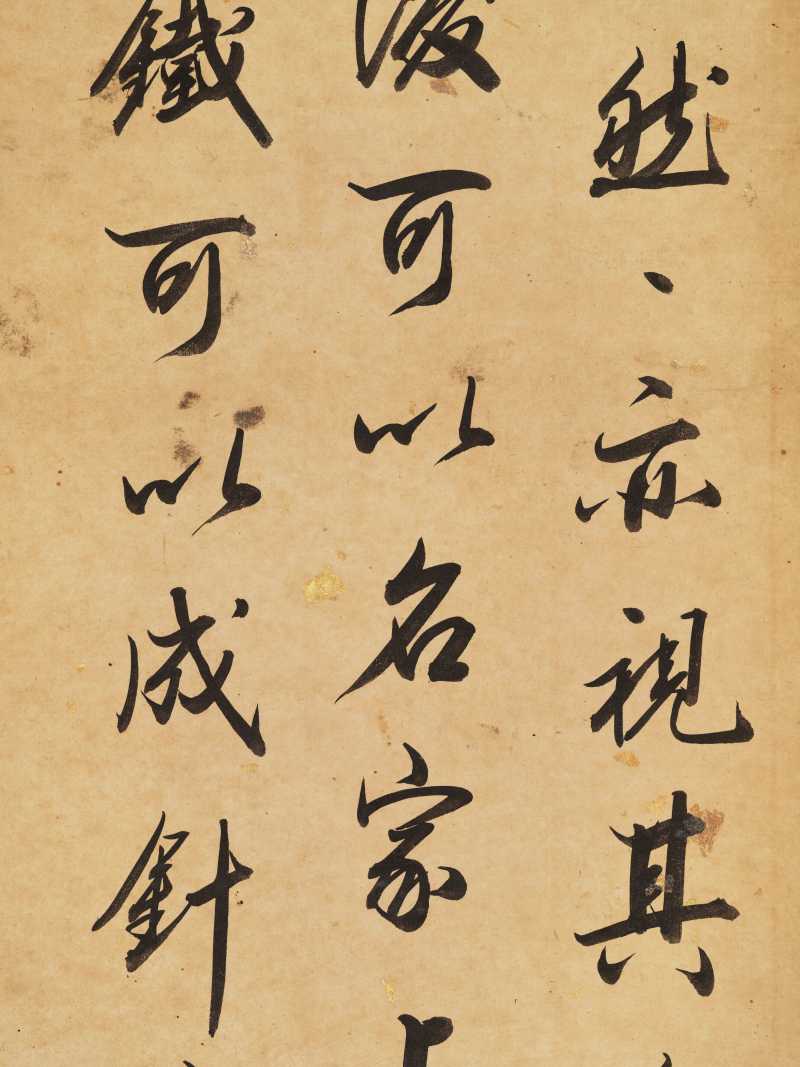 然、亦視其
後可以名家
鐵可以成針